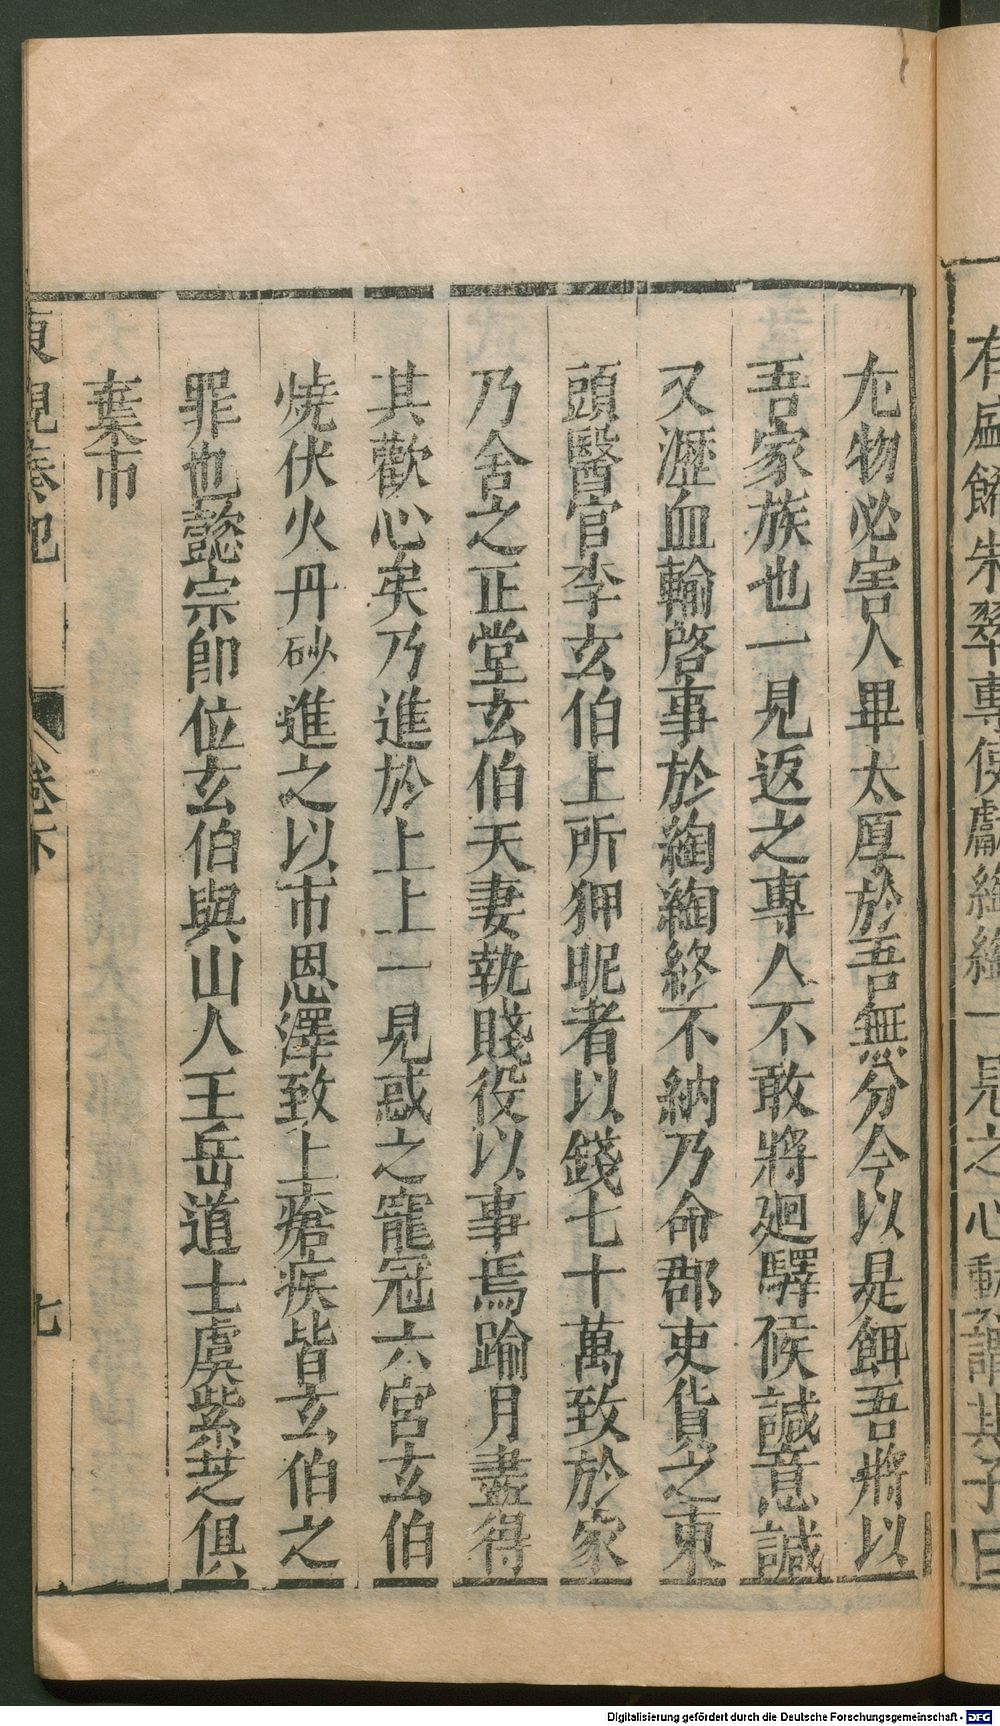 有盛餙朱翠專使獻綯綯一見之心動謂其子曰
尤物必害人畢太厚於吾無分今以是餌吾將以
吾家族也一見返之專人不敢將廻驛候諴意諴
又瀝血輸啓事於綯綯終不納乃命郡吏貨之東
頭醫官李玄伯上所狎昵者以錢七十萬致於家
乃舍之正堂玄伯夫妻執賤役以事焉踰月盡得
其歡心矣乃進於上上一見惑之寵冠六宮玄伯
燒伏火丹砂進之以市恩澤致上瘡疾皆玄伯之
罪也懿宗即位玄伯與山人王岳道士虞紫芝俱
棄市
東觀奏記 卷下 七
Digitalisierung gefördert durch die Deutsche Forschungsgemeinschaft - DFG